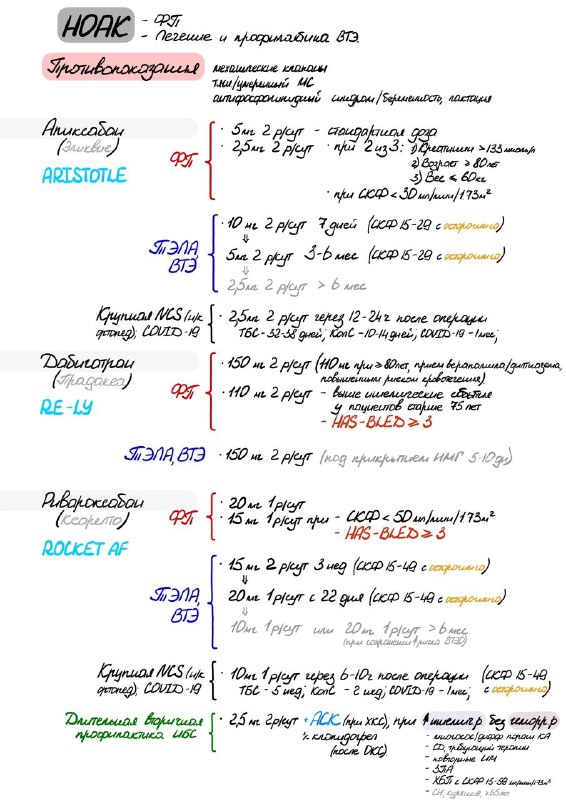 НОАК - ФП
- Лечение и профилактика ВТЭ.
Противопоказания механические клапаны
тяж/умеренный МС
антифосфолипидный синдром/беременность, лактация
Апиксабан
(Эликвис)
ARISTOTLE
ФП
· 5мг 2 р/сут - стандартная доза
· 2,5мг 2 р/сут · при 2 из 3: 1) Креатинин > 133 мкмоль/л
2) Возраст ≥ 80 лет
3) Вес ≤ 60кг
· при СКФ < 30 мл/мин/1,73м²
ТЭЛА, ВТЭ
· 10 мг 2 р/сут 7 дней (СКФ 15-29 с осторожно)
⇓
5мг 2 р/сут 3-6 мес (СКФ 15-29 с осторожно)
⇓
2,5мг 2 р/сут > 6 мес
Крупная NCS (н/к ортопед), COVID-19
· 2,5мг 2 р/сут через 12-24ч после операции
ТБС - 32-38 дней; КолС - 10-14 дней; COVID-19 - 1 мес;
Дабигатран
(Прадакса)
RE-LY
ФП
· 150 мг 2 р/сут (110мг при ≥ 80лет, прием верапамила/дилтиазема,
повышенным риском кровотечения)
· 110 мг 2 р/сут - выше ишемические события
у пациентов старше 75 лет
- HAS-BLED ≥ 3
ТЭЛА, ВТЭ · 150 мг 2 р/сут (под прикрытием НМГ 5-10дн)
Ривароксабан
(Ксарелто)
ROCKET AF
ФП
· 20мг 1 р/сут
· 15мг 1 р/сут при - СКФ < 50 мл/мин/1,73м²
- HAS-BLED ≥ 3
ТЭЛА, ВТЭ
· 15 мг 2 р/сут 3 нед (СКФ 15-49 с осторожно)
⇓
20мг 1 р/сут с 22 дня (СКФ 15-49 с осторожно)
⇓
10мг 1 р/сут или 20мг 1 р/сут > 6 мес
(при сохранении ↑ риска ВТЭО)
Крупная NCS (н/к ортопед), COVID-19
· 10мг 1 р/сут через 6-10ч после операции (СКФ 15-49
ТБС - 5 нед; КолС - 2 нед; COVID-19 - 1 мес; с осторожно)
Длительная вторичная
профилактика ИБС
· 2,5 мг 2 р/сут + АСК (при ХКС), при ↑ ишем.р без геморр.р
клопидогрел
(после ОКС)
- многосос/дифф пораж КА
- СД, требующий терапии
- повторные ИМ
- ЗПА
- ХБП с СКФ 15-59 мл/мин/1,73м²
- СН, курение, ≥65 лет